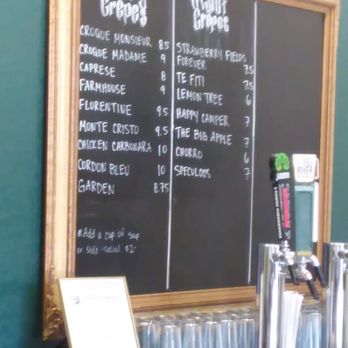 Crepes
Sweet
Crepes
CROQUE MONSIEUR 8.5
CROQUE MADAME 9
CAPRESE 8
FARMHOUSE 9
FLORENTINE 9.5
MONTE CRISTO 9.5
CHICKEN CARBONARA 10
CORDON BLEU 10
GARDEN 8.75
*Add a cup of soup
or side salad $2-
STRAWBERRY FIELDS
FOREVER 7.5
TE FITI 7.5
LEMON TREE 6
HAPPY CAMPER 7
THE BIG APPLE 7
CHORRO 6
SPECULOOS 7
RIVER